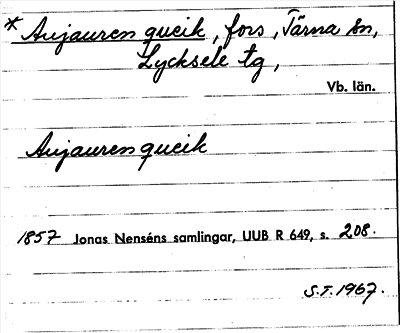 * Aujauren gueik, fors, Tärna sn,
Lycksele tg,
Vb. län.
Aujauren gueik
1857 Jonas Nenséns samlingar, UUB R 649, s. 208.
S.T. 1967.